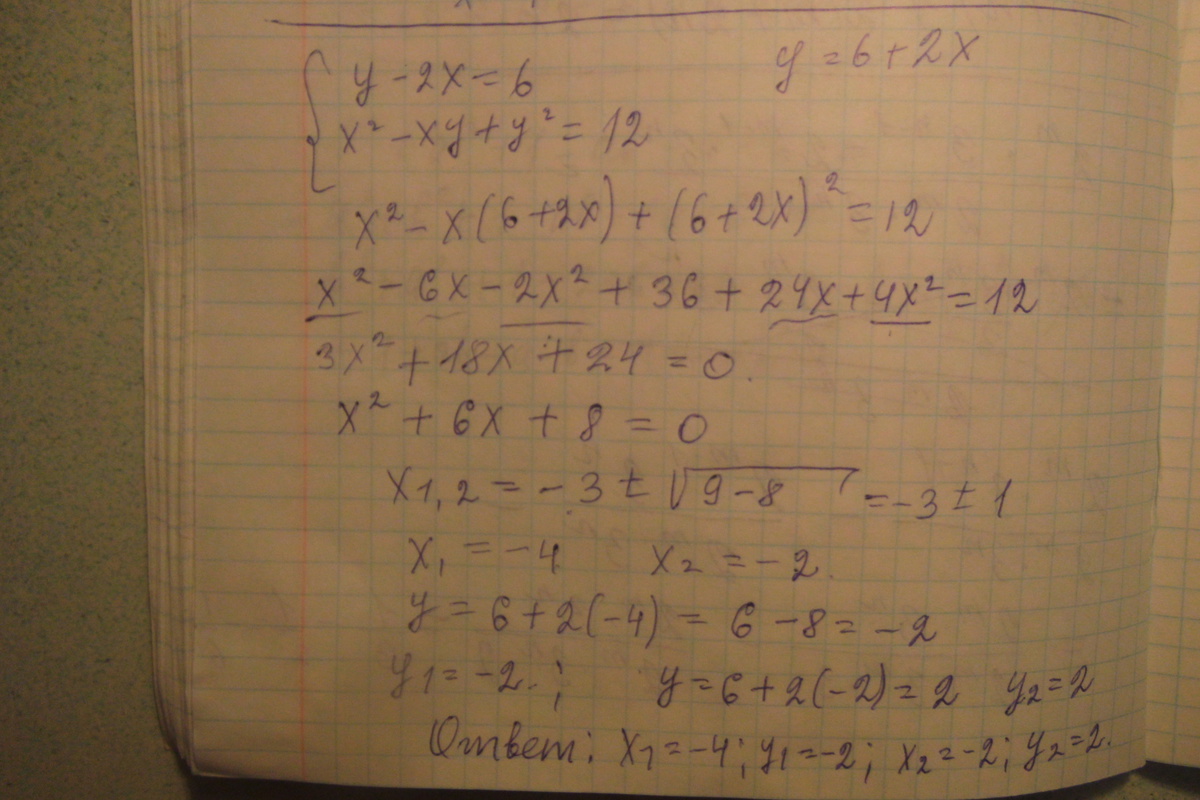 y - 2x = 6
y = 6 + 2x
x² - xy + y² = 12
x² - x(6 + 2x) + (6 + 2x)² = 12
x² - 6x - 2x² + 36 + 24x + 4x² = 12
3x² + 18x + 24 = 0.
x² + 6x + 8 = 0
x1,2 = -3 ± √9 - 8 = -3 ± 1
x₁ = -4 x₂ = -2.
y = 6 + 2(-4) = 6 - 8 = -2
y1 = -2. ; y = 6 + 2(-2) = 2 y₂ = 2
Ответ: x₁ = -4; y₁ = -2; x₂ = -2; y₂ = 2.